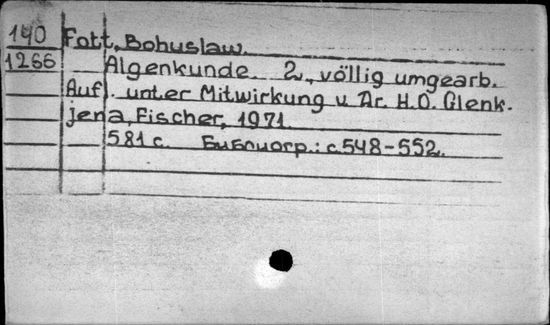 140 Fott, Bohuslaw.
1266 Algenkunde. 2., völlig umgearb.
Aufl. unter Mitwirkung v. Dr. H.O. Glenk.
jena, Fischer, 1971.
581 c. Библиогр.: с. 548-552.